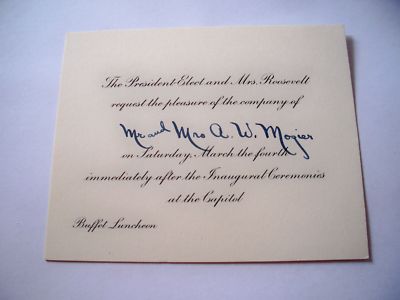 The President-Elect and Mrs. Roosevelt
request the pleasure of the company of
Mr and Mrs A. W. Mosier
on Saturday, March the fourth
immediately after the Inaugural Ceremonies
at the Capitol
Buffet Luncheon